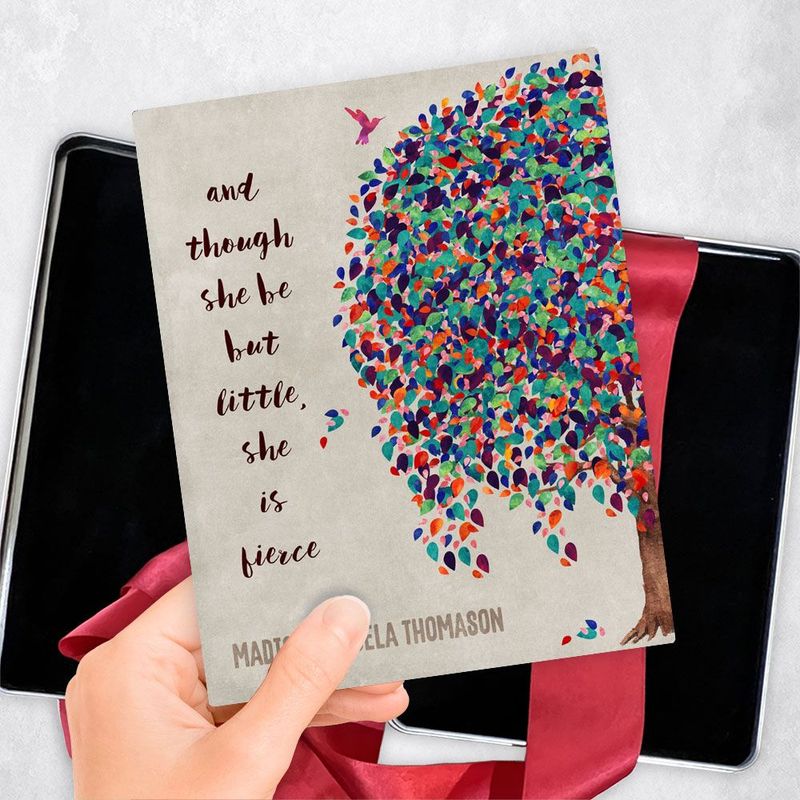 and
though
she be
but
little,
she
is
fierce
THOMASON